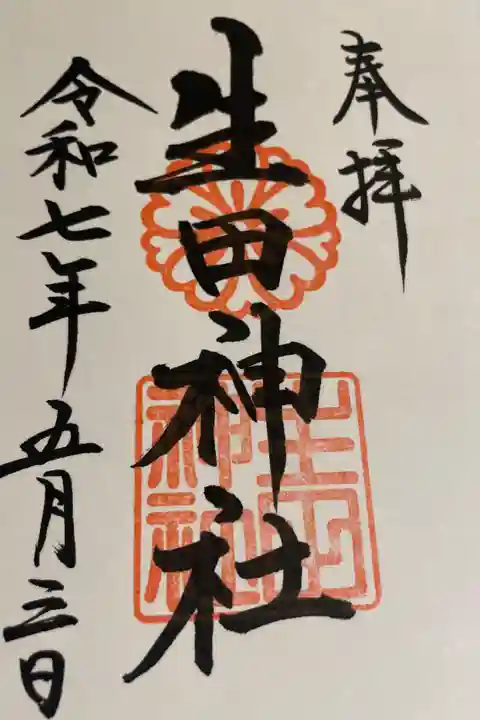 奉拝
生田神社
生田神社
令和七年五月三日